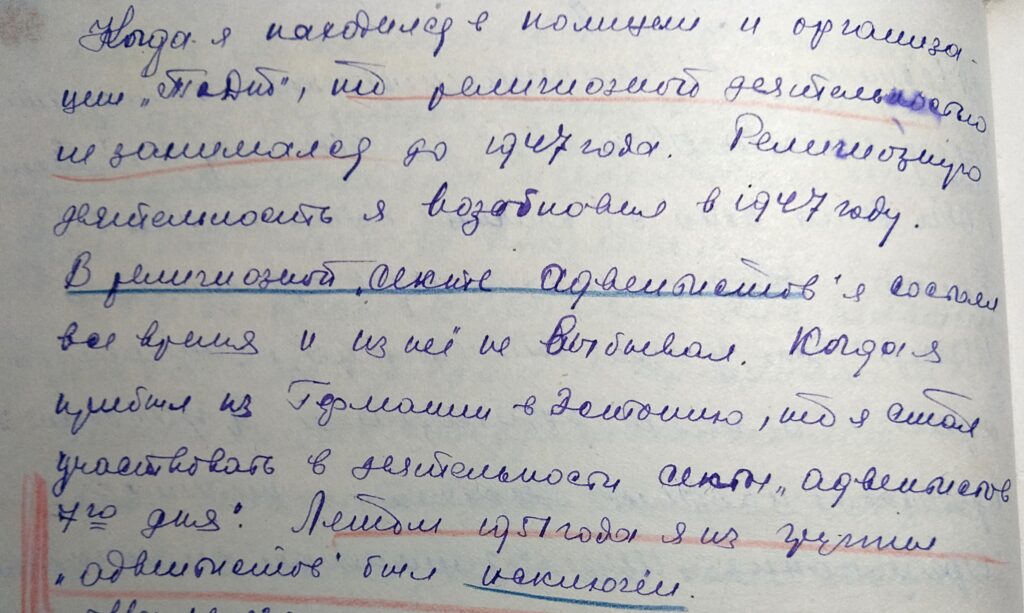 Когда я находился в полиции и организа-
ции „Тодт", то религиозной деятельностью
не занимался до 1947 года. Религиозную
деятельность я возобновил в 1947 году.
В религиозной секте адвентистов я состоял
все время и из неё не выбывал. Когда я
прибыл из Германии в Эстонию, то я стал
участвовать в деятельности секты „адвентистов
7го дня". Летом 1951 года я из группы
„адвентистов" был исключен.